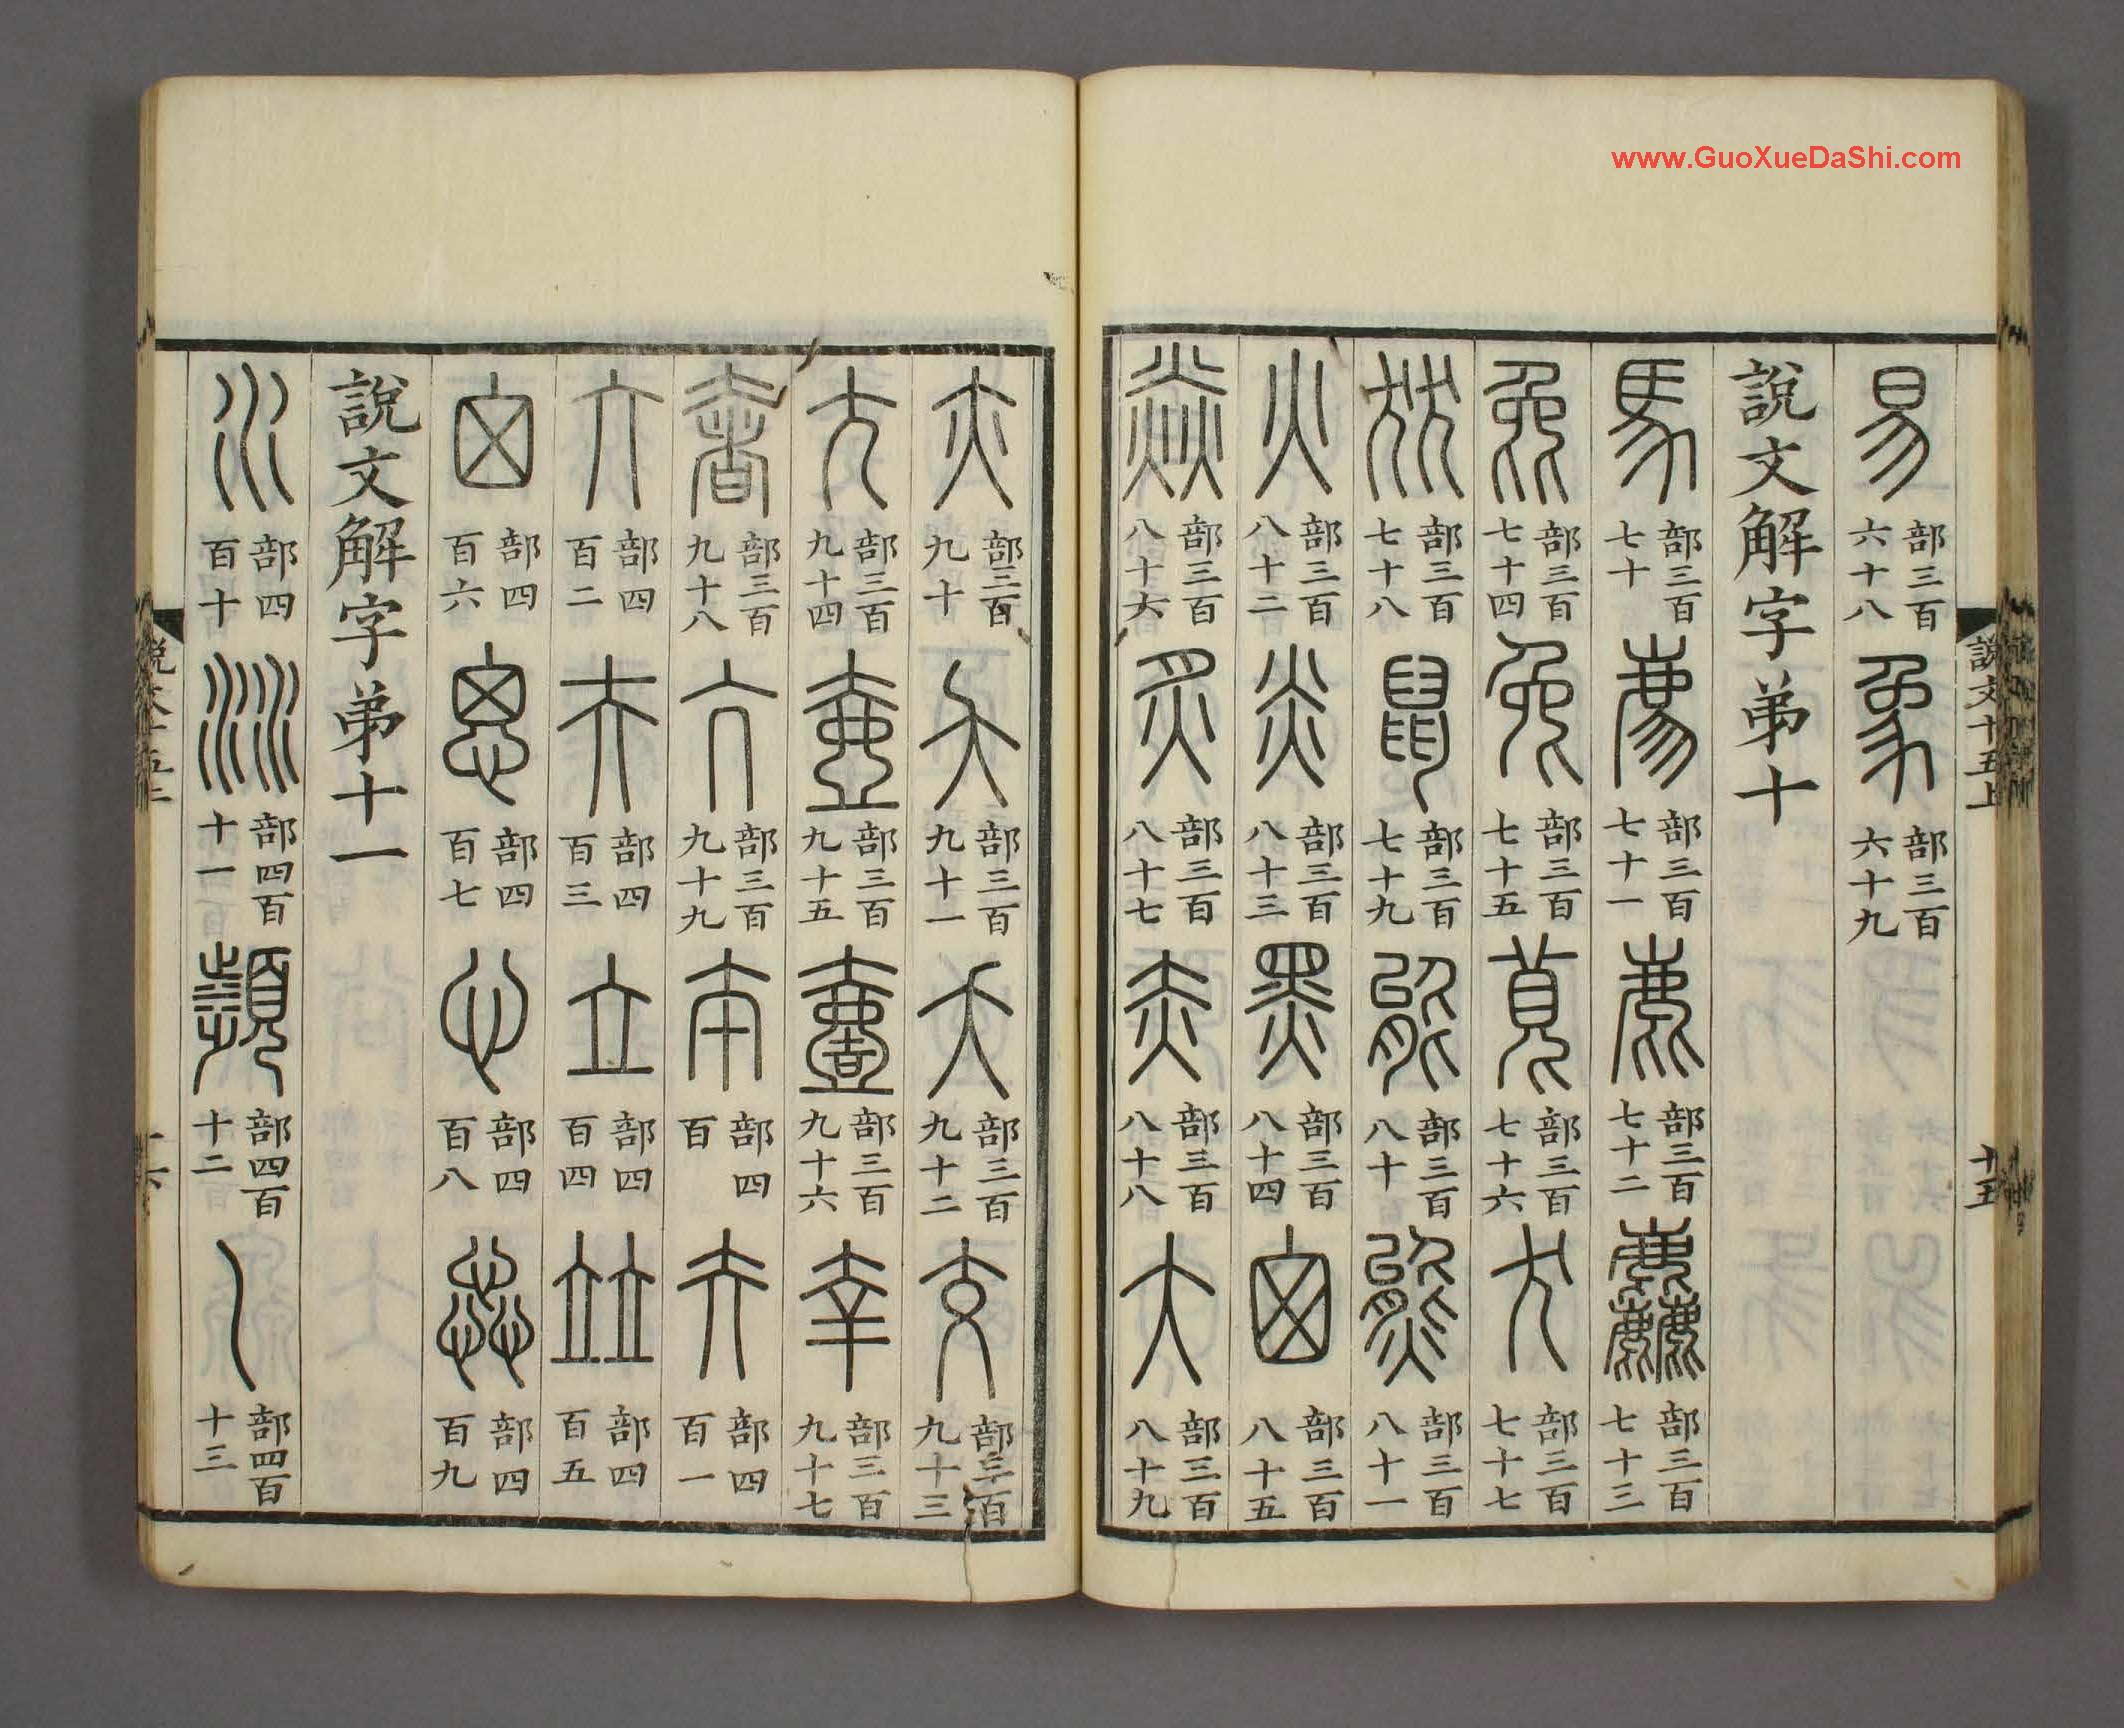 www.GuoXueDaShi.com
說文十五上 十五
易 部三百六十八 象 部三百六十九
說文解字弟十
馬 部三百七十 廌 部三百七十一 鹿 部三百七十二 麤 部三百七十三
㲋 部三百七十四 兔 部三百七十五 萈 部三百七十六 犬 部三百七十七
㹜 部三百七十八 鼠 部三百七十九 能 部三百八十 熊 部三百八十一
火 部三百八十二 炎 部三百八十三 黑 部三百八十四 囪 部三百八十五
焱 部三百八十六 炙 部三百八十七 赤 部三百八十八 大 部三百八十九
亦 部三百九十 夨 部三百九十一 夭 部三百九十二 交 部三百九十三
尣 部三百九十四 壺 部三百九十五 壹 部三百九十六 㚔 部三百九十七
奢 部三百九十八 亢 部三百九十九 夲 部四百 夰 部四百一
亣 部四百二 夫 部四百三 立 部四百四 竝 部四百五
囟 部四百六 思 部四百七 心 部四百八 惢 部四百九
說文解字弟十一
水 部四百十 沝 部四百十一 瀕 部四百十二 𡿨 部四百十三